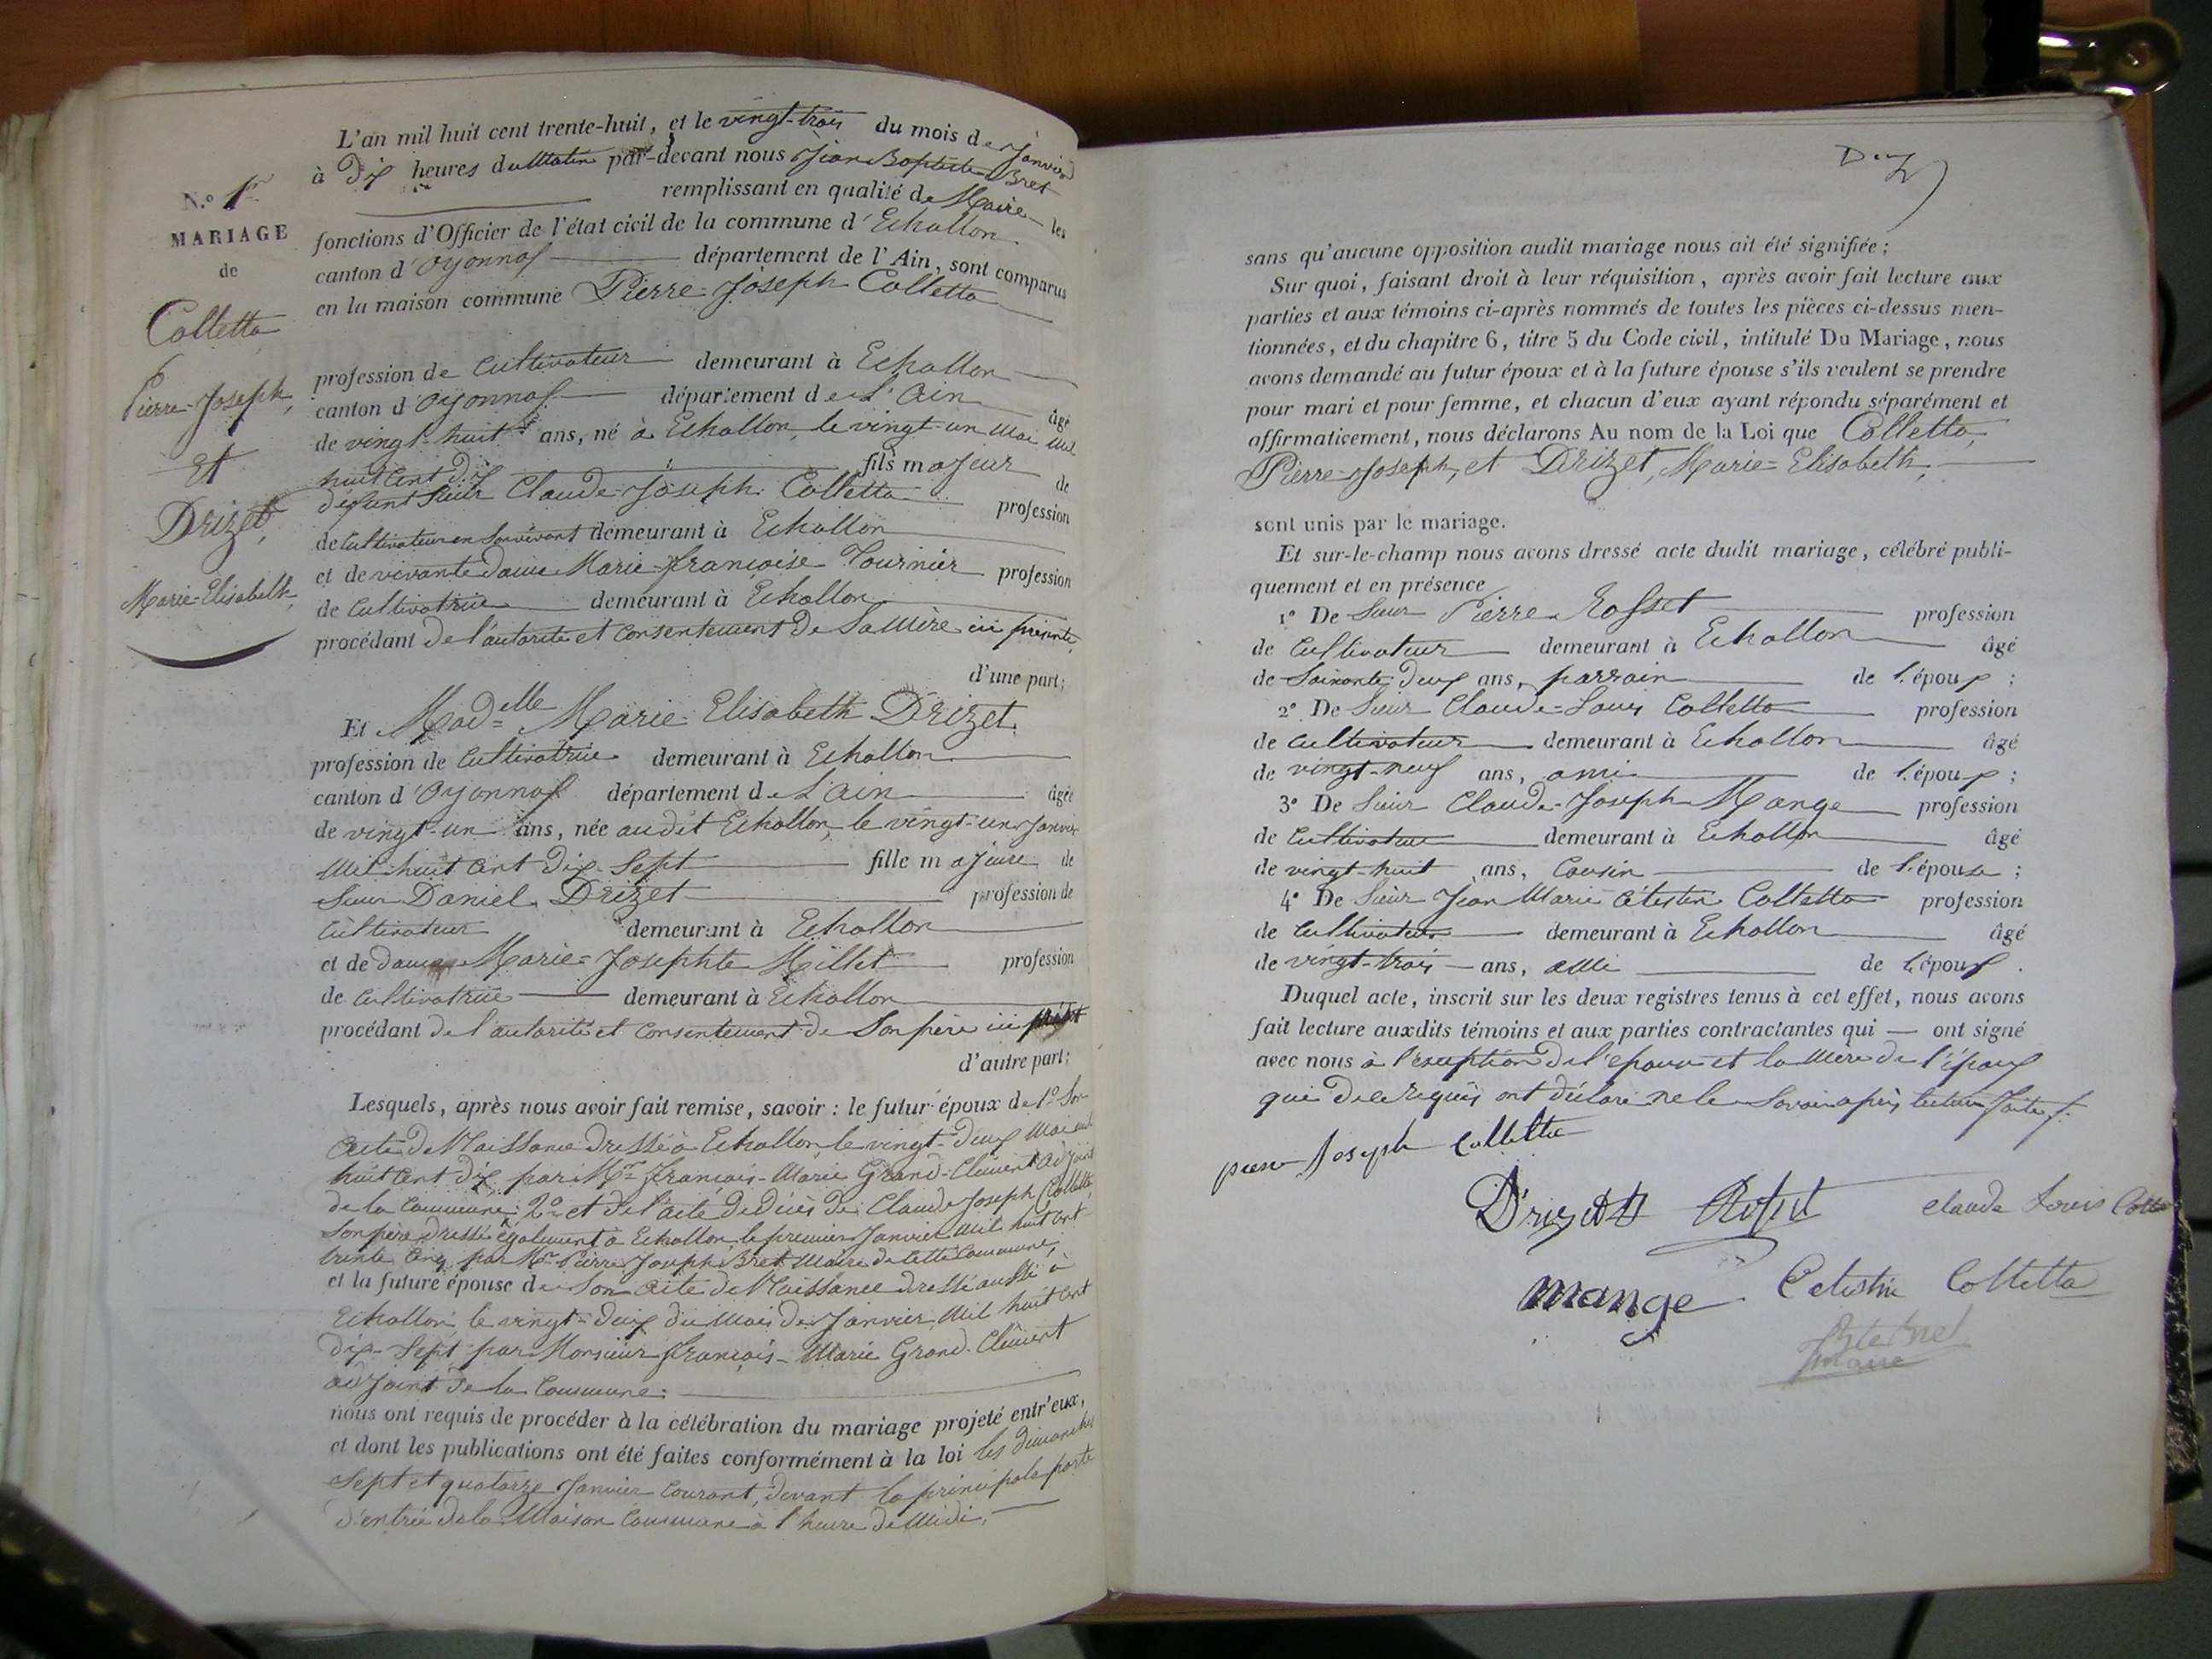 N.o 1er
MARIAGE
de
Colletta
Pierre-Joseph,
Et
Drizet,
Marie-Elisabeth,
L'an mil huit cent trente-huit, et le vingt-trois du mois de Janvier
à dix heures du Matin par-devant nous Jean Baptiste Bret
remplissant en qualité de Maire les
fonctions d'Officier de l'état civil de la commune d'Echallon
canton d'Oyonnax département de l'Ain, sont comparus
en la maison commune Pierre-Joseph Colletta
profession de Cultivateur demeurant à Echallon
canton d'Oyonnax département de L'Ain âgé
de vingt-huit ans, né à Echallon, le vingt-un Mai Mil
huit Cent dix fils majeur de
défunt Sieur Claude-Joseph Colletta profession
de Cultivateur en Son vivant demeurant à Echallon
et de vivante dame Marie-françoise Tournier profession
de Cultivatrice demeurant à Echallon
procédant de l'autorité et Consentement de Sa Mère ici présente,
d'une part;
Et Madelle Marie-Elisabeth Drizet.
profession de Cultivatrice demeurant à Echallon
canton d'Oyonnax département de L'Ain âgée
de vingt-un ans, née audit Echallon, le vingt-un Janvier
Mil huit Cent dix-Sept fille majeure de
Sieur Daniel Drizet profession de
Cultivateur demeurant à Echallon
et de dame Marie-Josephte Millet profession
de Cultivatrice demeurant à Echallon
procédant de l'autorité et Consentement de Son père ici présent
d'autre part;
Lesquels, après nous avoir fait remise, savoir : le futur époux de 1o Son
Acte de Naissance dressé à Echallon, le vingt-deux Mai mil
huit Cent dix, par Mr françois-Marie Grand-Clément adjoint
de la Commune; 2o et de l'acte de décès de Claude Joseph Colletta
Son père dressé également à Echallon, le premier Janvier Mil huit Cent
trente Cinq par Mr Pierre Joseph Bret Maire de cette Commune,
et la future épouse de Son acte de Naissance dressé aussi à
Echallon, le vingt-deux du Mois de Janvier Mil huit Cent
dix-Sept par Monsieur françois-Marie Grand-Clément
adjoint de la Commune.
nous ont requis de procéder à la célébration du mariage projeté entr'eux,
et dont les publications ont été faites conformément à la loi les dimanches
Sept et quatorze Janvier Courant, devant la principale porte
d'entrée de la Maison Commune à l'heure de Midi,
Deux
sans qu'aucune opposition audit mariage nous ait été signifiée;
Sur quoi, faisant droit à leur réquisition, après avoir fait lecture aux
parties et aux témoins ci-après nommés de toutes les pièces ci-dessus men-
tionnées, et du chapitre 6, titre 5 du Code civil, intitulé Du Mariage, nous
avons demandé au futur époux et à la future épouse s'ils veulent se prendre
pour mari et pour femme, et chacun d'eux ayant répondu séparément et
affirmativement, nous déclarons Au nom de la Loi que Colletta,
Pierre-Joseph, et Drizet, Marie-Elisabeth,
sont unis par le mariage.
Et sur-le-champ nous avons dressé acte dudit mariage, célébré publi-
quement et en présence
1o De Sieur Pierre Rosset profession
de Cultivateur demeurant à Echallon âgé
de Soixante-deux ans, parrain de l'époux;
2o De Sieur Claude-Louis Colletta profession
de Cultivateur demeurant à Echallon âgé
de vingt-neuf ans, ami de l'époux;
3o De Sieur Claude-Joseph Mange profession
de Cultivateur demeurant à Echallon âgé
de vingt-huit ans, Cousin de l'épouse;
4o De Sieur Jean Marie Célestin Colletta profession
de Cultivateur demeurant à Echallon âgé
de vingt-trois ans, ami de l'époux.
Duquel acte, inscrit sur les deux registres tenus à cet effet, nous avons
fait lecture auxdits témoins et aux parties contractantes qui — ont signé
avec nous à l'exception de l'épouse et la Mère de l'époux
qui de ce requis ont déclaré ne le Savoir après lecture faite.
pierre Joseph Colletta
Drizet Rosset Claude Louis Colletta
Mange Celestin Colletta
Bret
maire